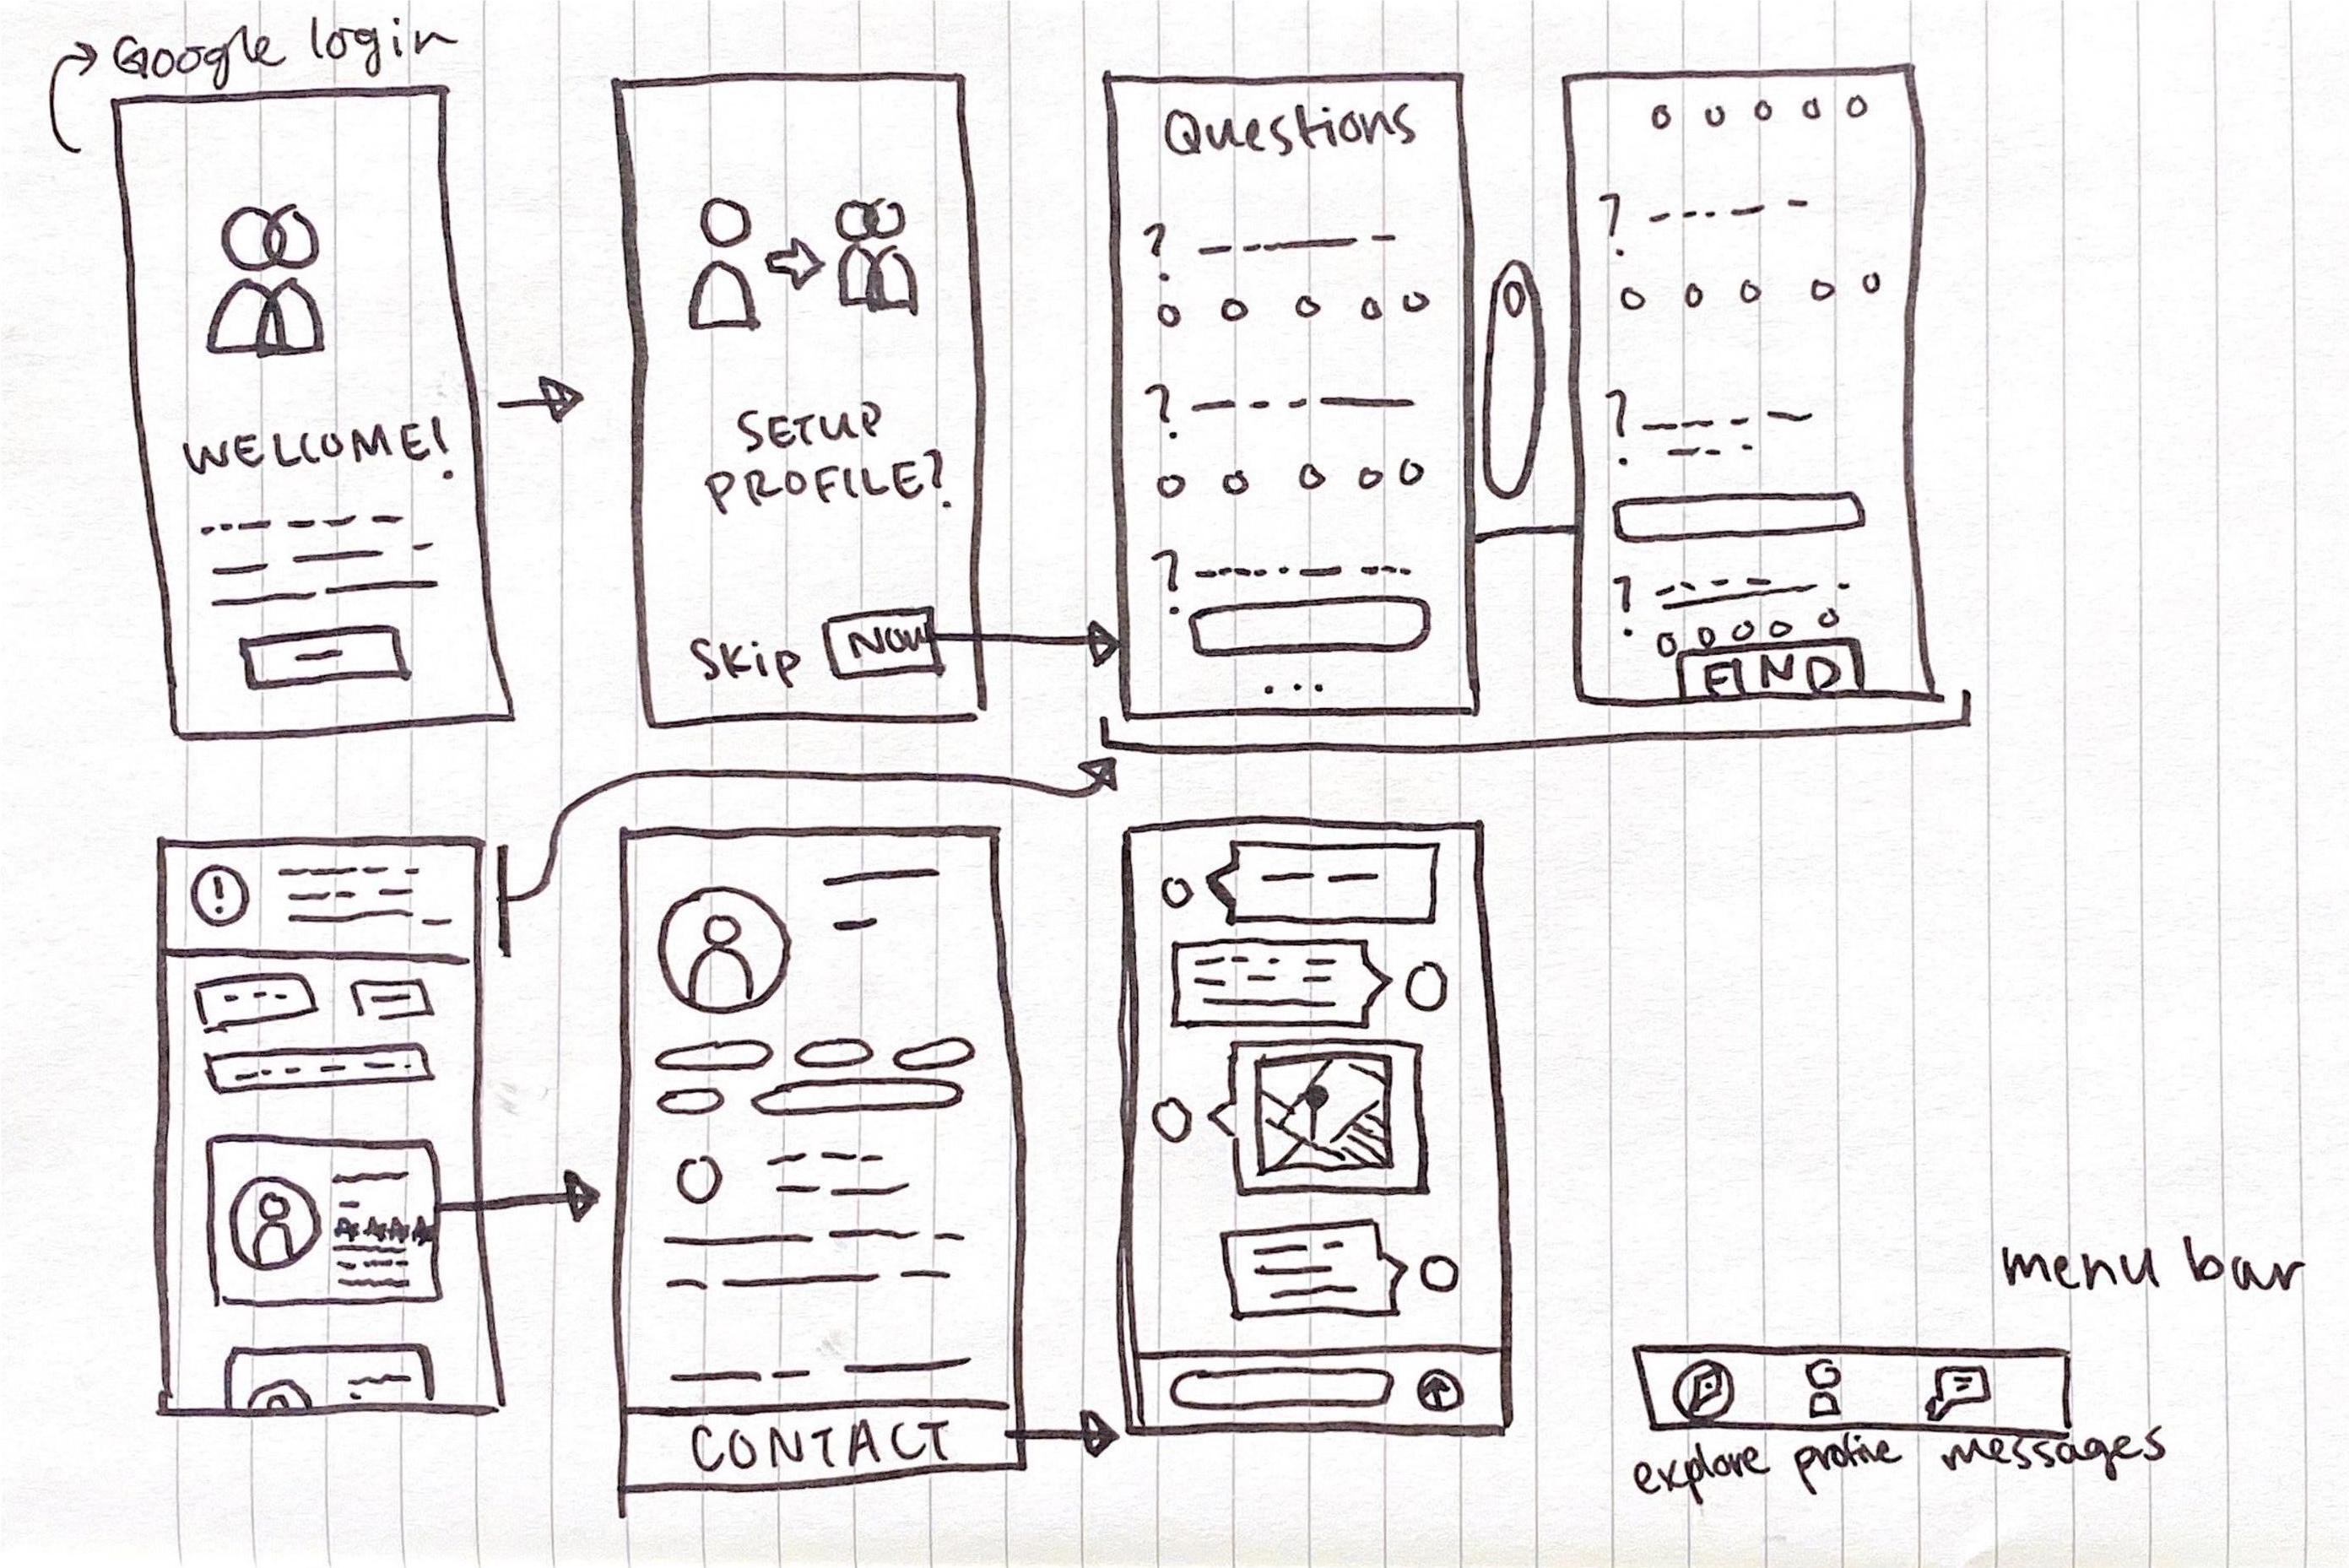 Google login
WELCOME!
SETUP
PROFILE?
Skip
NOW
Questions
?
?
?
...
?
?
?
FIND
!
CONTACT
menu bar
explore profile messages